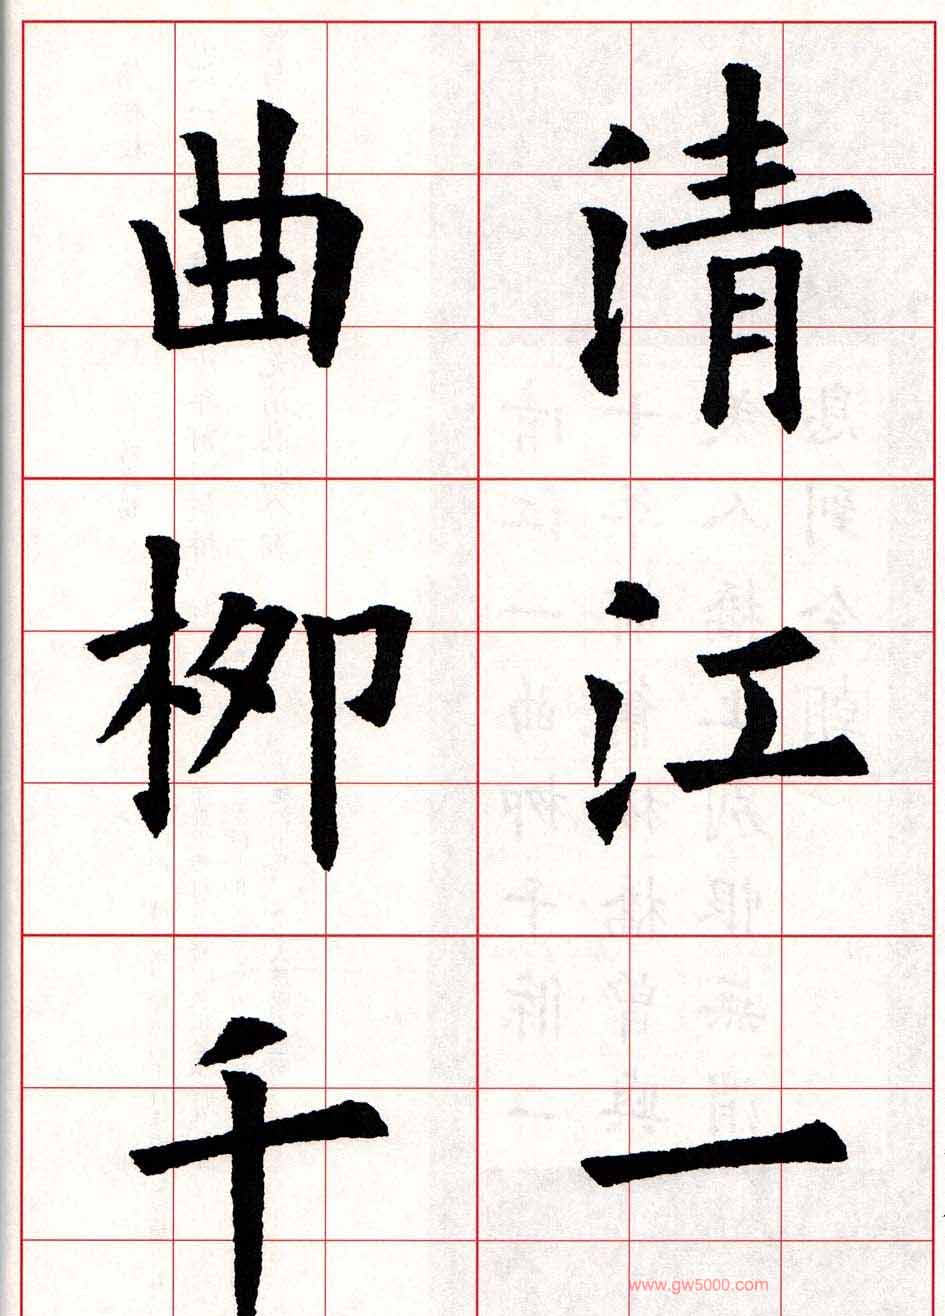 清江一
曲柳千
www.gw5000.com